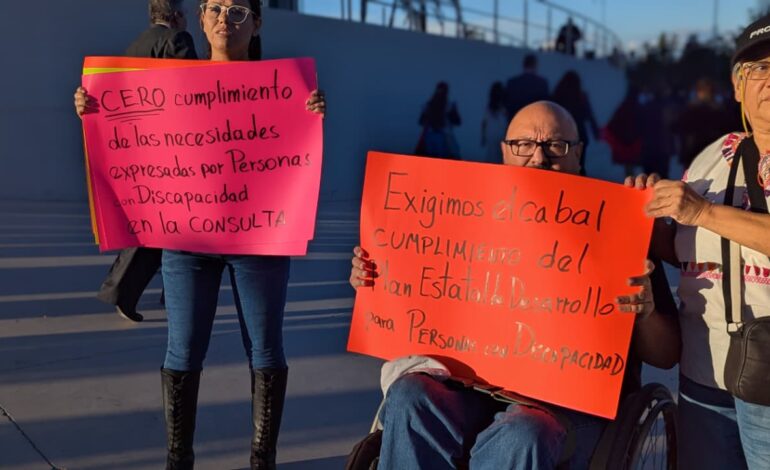 CERO cumplimiento
de las necesidades
expresadas por Personas
con Discapacidad
en la CONSULTA
Exigimos el cabal
CUMPLIMIENTO del
Plan Estatal de Desarrollo
para PERSONAS con DISCAPACIDAD